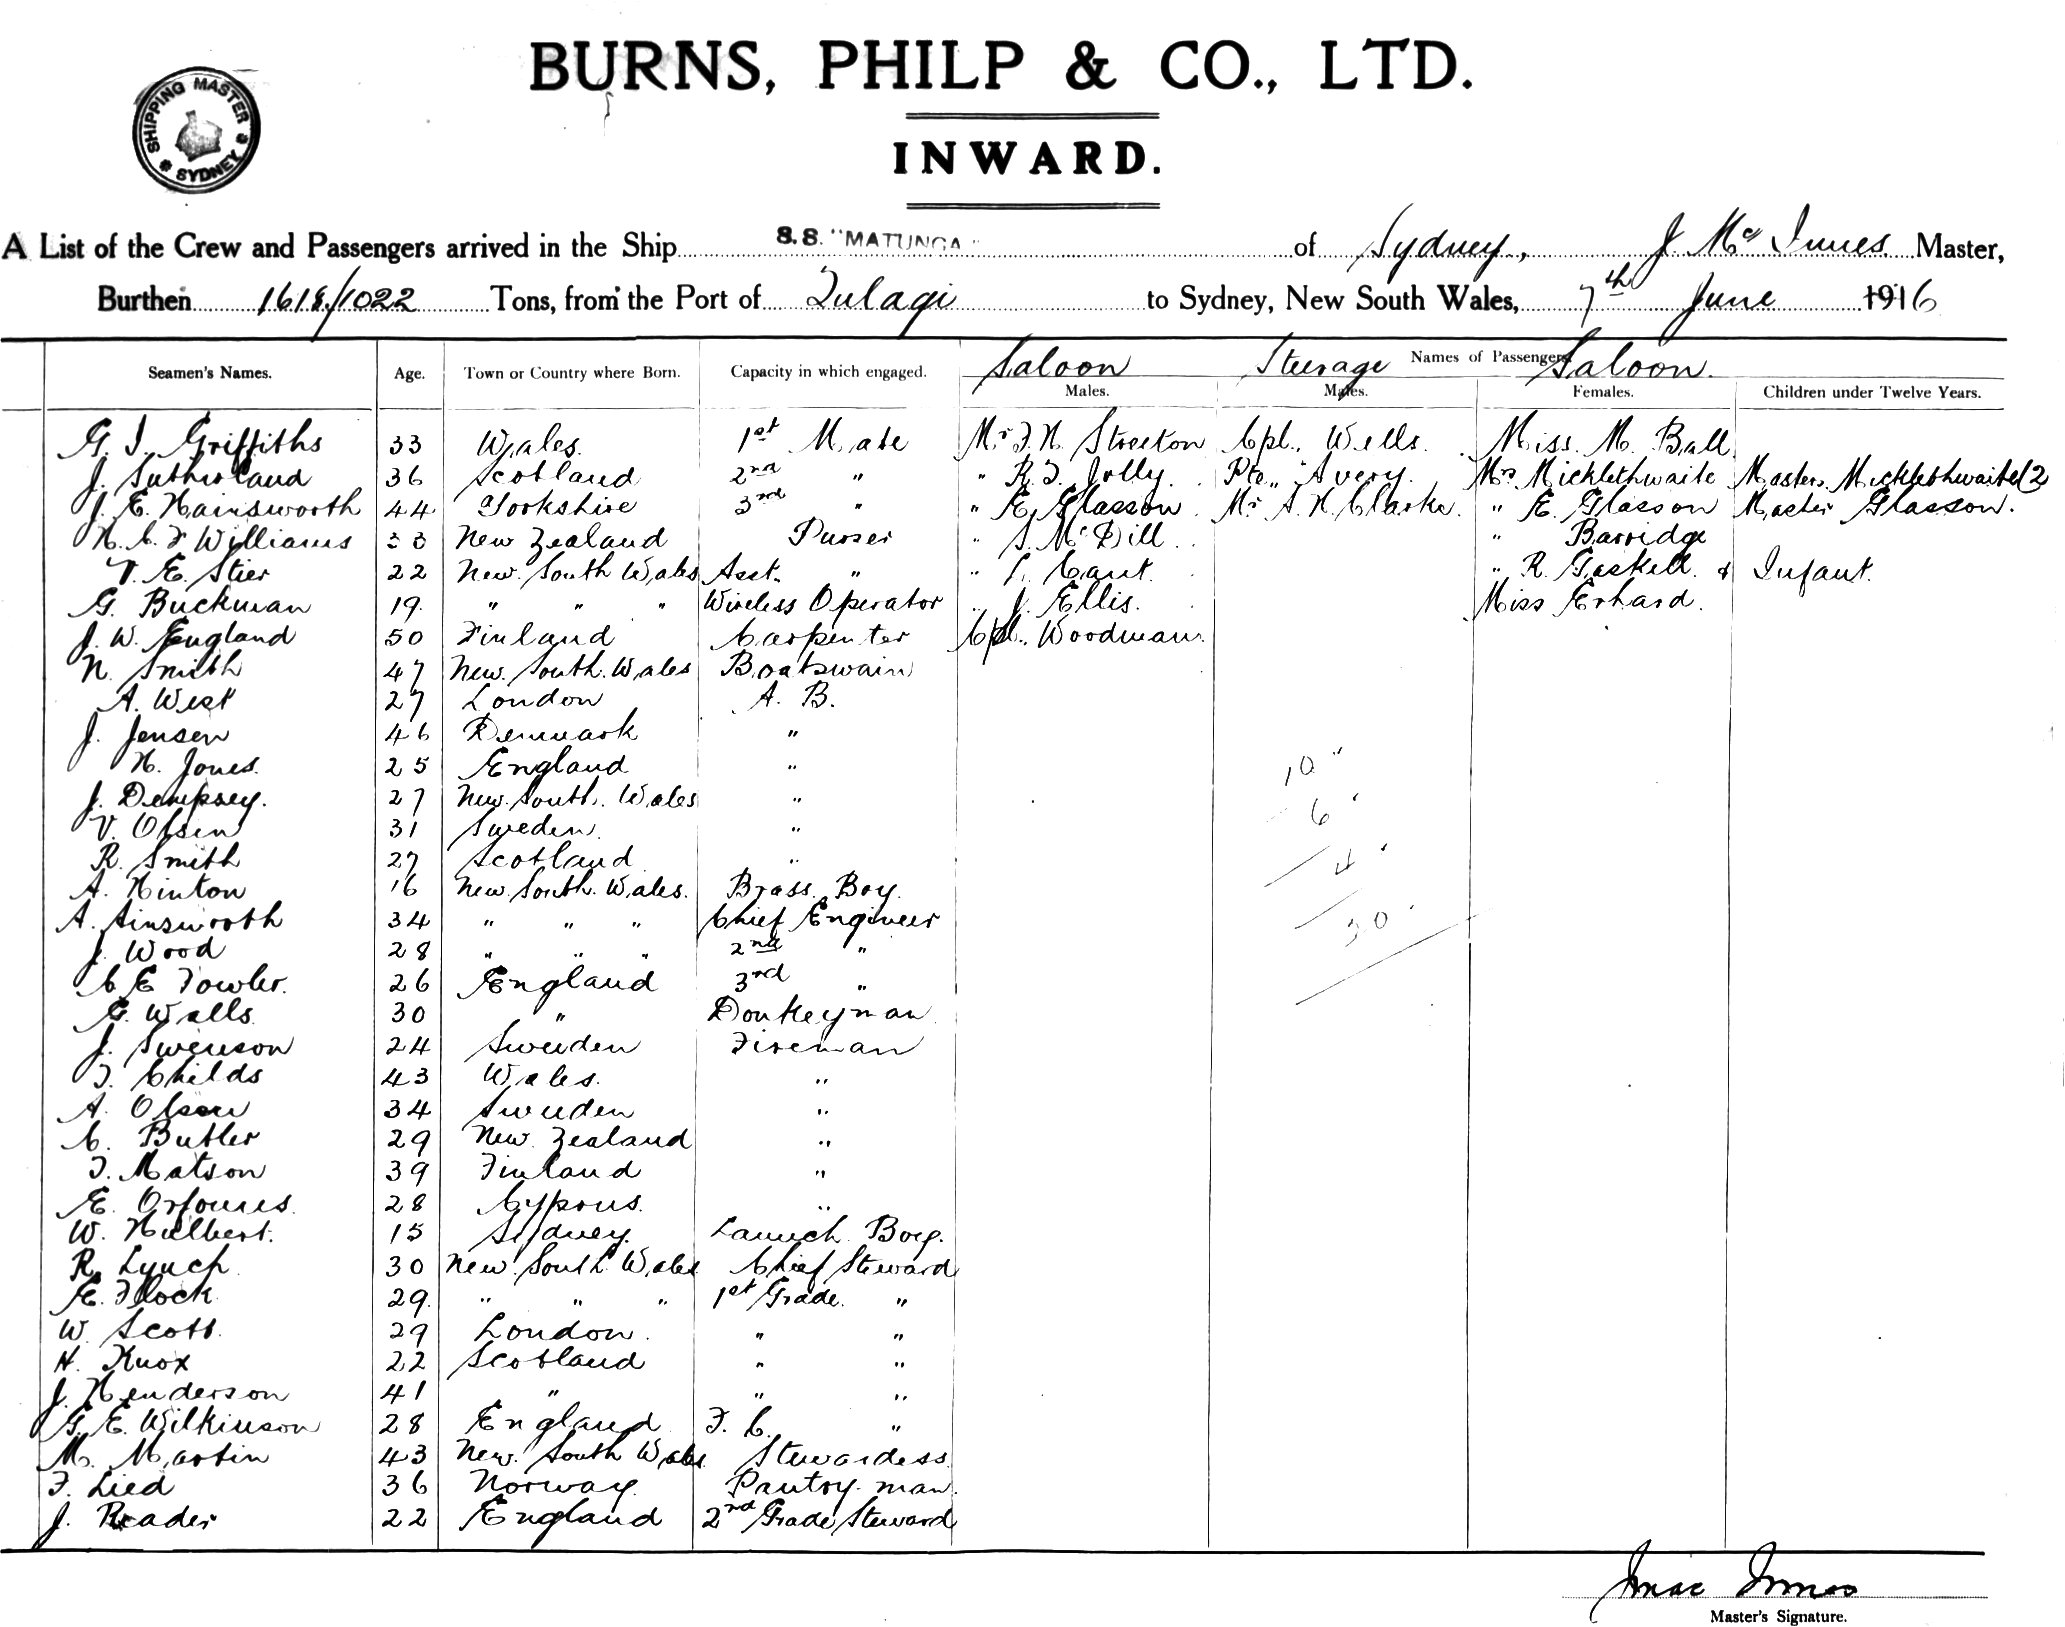 BURNS, PHILP & CO., LTD.
SHIPPING MASTER SYDNEY
INWARD.
A List of the Crew and Passengers arrived in the Ship S.S. "MATUNGA" of Sydney, J. McInnes. Master,
Burthen 1618/1022 Tons, from the Port of Tulagi to Sydney, New South Wales, 7th June 1916
Names of Passengers
Saloon Steerage Saloon.
Seamen's Names. Age. Town or Country where Born. Capacity in which engaged. Males. Males. Females. Children under Twelve Years.
G. J. Griffiths 33 Wales. 1st Mate Mr F. H. Streeton Cpl. Wells. Miss. M. Ball
J. Sutherland 36 Scotland 2nd " " R. J. Jolly. Pte. Avery. Mrs Micklethwaite Masters. Micklethwaite (2
J. E. Hainsworth 44 Yorkshire 3rd " " E. Glasson. Mr A. H. Clarke. " E. Glasson Master Glasson.
H. C. F Williams 33 New Zealand Purser " S. McDill " Barridge
V. E. Stier 22 New South Wales Asst. " " L. Cant. " R. Gaskell. & Infant.
G. Buckman 19. " " " Wireless Operator " J. Ellis. Miss Erhard.
J. W. England 50 Finland Carpenter Cpl. Woodman.
N. Smith 47 New. South. Wales Boatswain
A. West 27 London A. B.
J. Jensen 46 Denmark "
H. Jones. 25 England "
J. Dempsey. 27 New. South. Wales "
V. Olsen 31 Sweden. "
R. Smith 27 Scotland "
A. Hinton 16 New. South. Wales. Brass. Boy.
A. Ainsworth 34 " " " Chief Engineer
J. Wood 28 " " " 2nd "
C E Fowler. 26 England 3rd "
G. Walls. 30 " Donkeyman
J. Swenson 24 Sweden Fireman
J. Childs 43 Wales. "
A. Olsen 34 Sweden "
C. Butler 29 New Zealand "
J. Matson 39 Finland "
E. Orfoures. 28 Cyprus. "
W. Hulbert. 15 Sydney. Launch Boy.
R. Lynch 30 New. South. Wales Chief Steward
E. Flock 29. " " " 1st Grade. "
W. Scott. 29 London. " "
H. Knox 22 Scotland " "
J. Henderson 41 " " "
G. E. Wilkinson 28 England F. C. "
M. Martin 43 New. South Wales Stewardess.
F. Lied 36 Norway. Pantry. man.
J. Reader 22 England 2nd Grade Steward
10 "
6 '
4 '
30 '
Master's Signature.